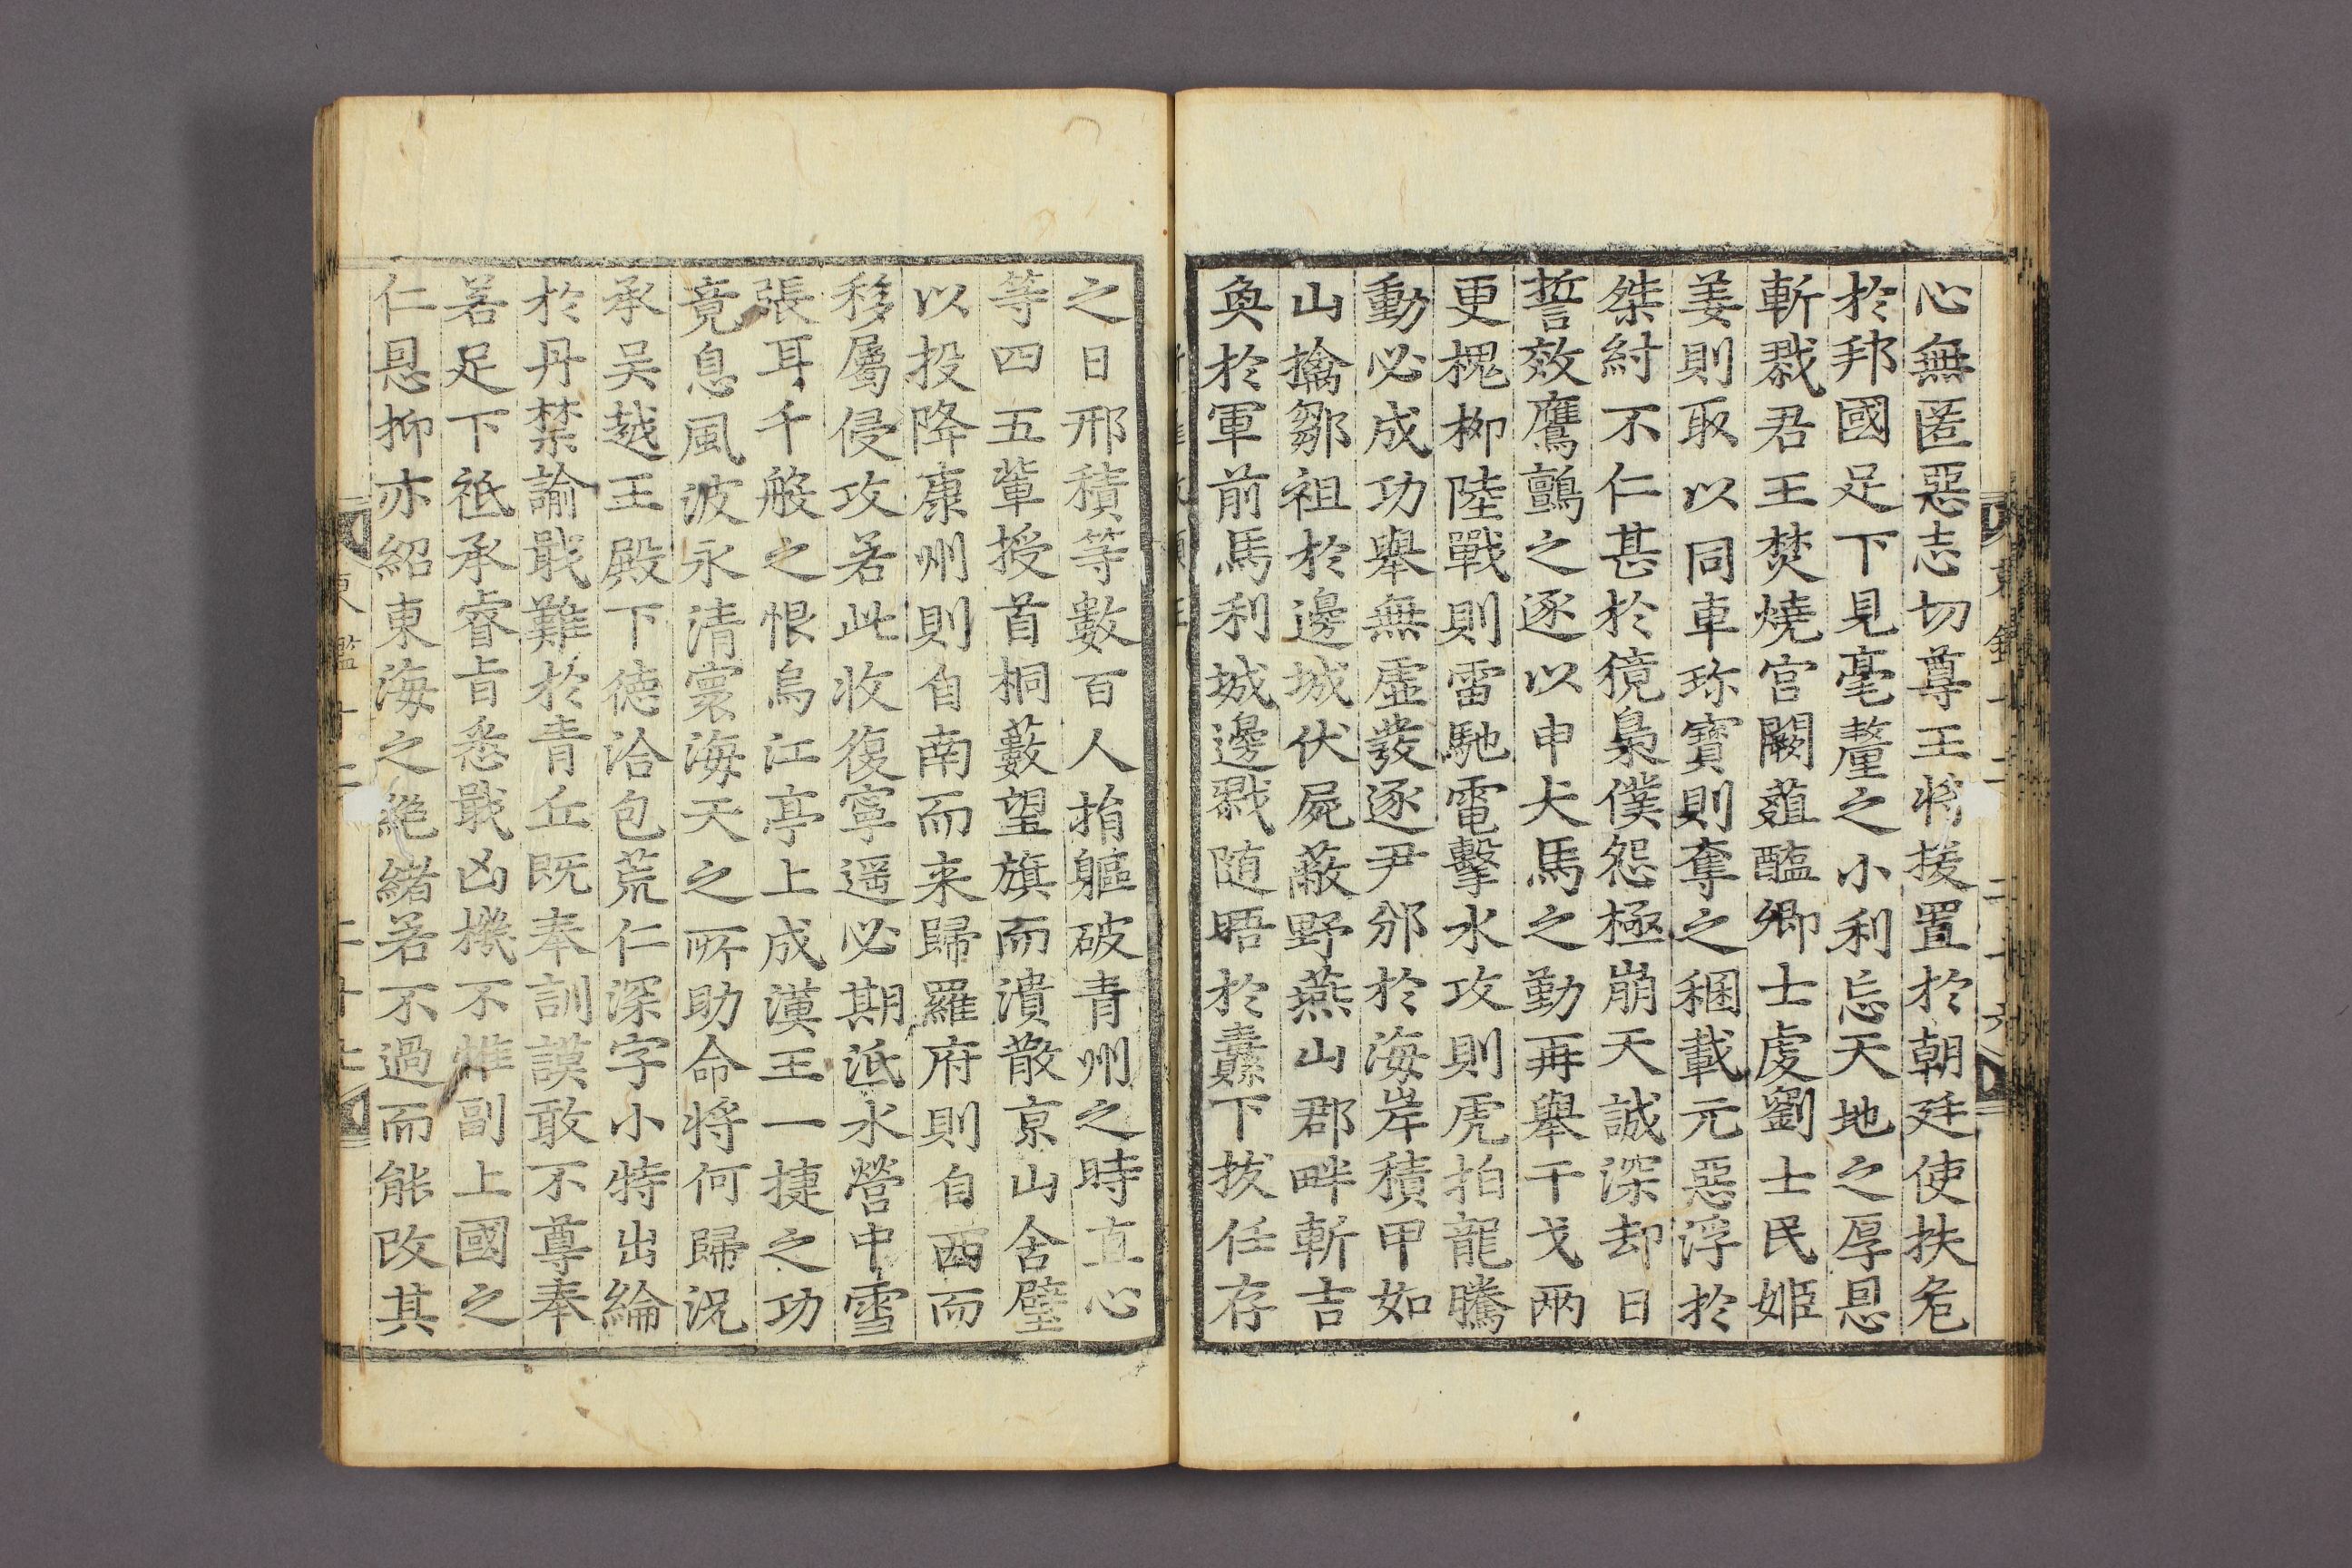 心無匿惡志切尊王將援置於朝廷使扶危
於邦國足下見毫釐之小利忘天地之厚恩
斬戮君王焚燒宮闕葅醢卿士虔劉士民姬
姜則取以同車珎寶則奪之稛載元惡浮於
桀紂不仁甚於獍梟僕怨極崩天誠深却日
誓效鷹鸇之逐以申犬馬之勤再舉干戈兩
更槐柳陸戰則雷馳電擊水攻則虎拍龍騰
動必成功舉無虛發逐尹邠於海岸積甲如
山擒鄒祖於邊城伏屍蔽野燕山郡畔斬吉
奐於軍前馬利城邊戮随晤於纛下拔任存
之日邢積等數百人捐軀破青州之時直心
等四五軰授首桐藪望旗而潰散京山含璧
以投降康州則自南而来歸羅府則自西而
移屬侵攻若此收復寧遥必期泜水營中雪
張耳千般之恨烏江亭上成漢王一捷之功
竟息風波永清寰海天之所助命將何歸況
承吴越王殿下德洽包荒仁深字小特出綸
於丹禁諭戢難於青丘旣奉訓謨敢不尊奉
若足下祗承睿旨悉戢凶機不惟副上國之
仁恩抑亦紹東海之絶緒若不過而能改其
東鑑十二